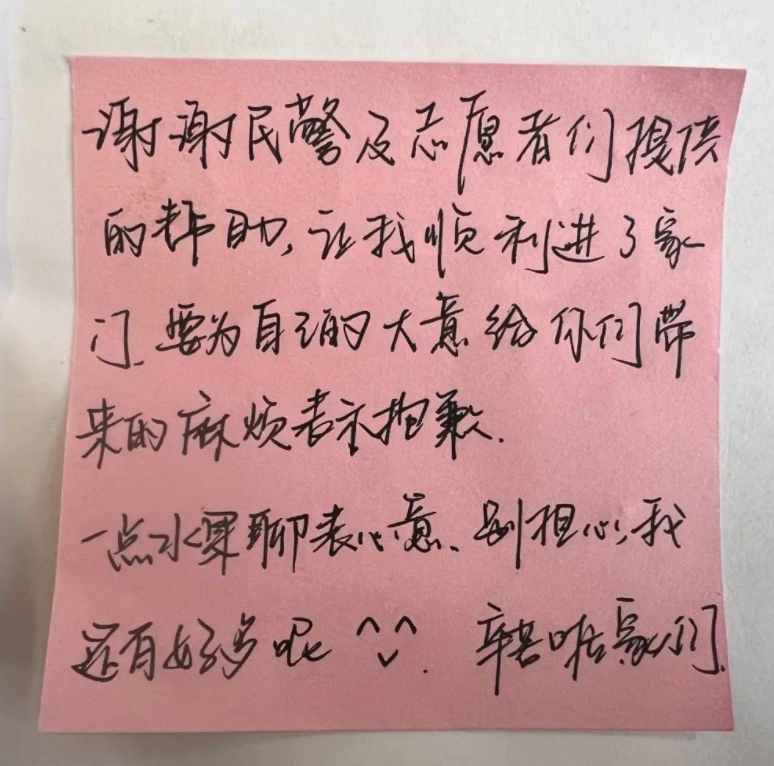 谢谢民警及志愿者们提供
的帮助,让我顺利进了家
门.要为自己的大意给你们带
来的麻烦表示抱歉.
一点水果聊表心意、别担心,我
还有好多呢 ^ᵥ^. 辛苦咯家人们.